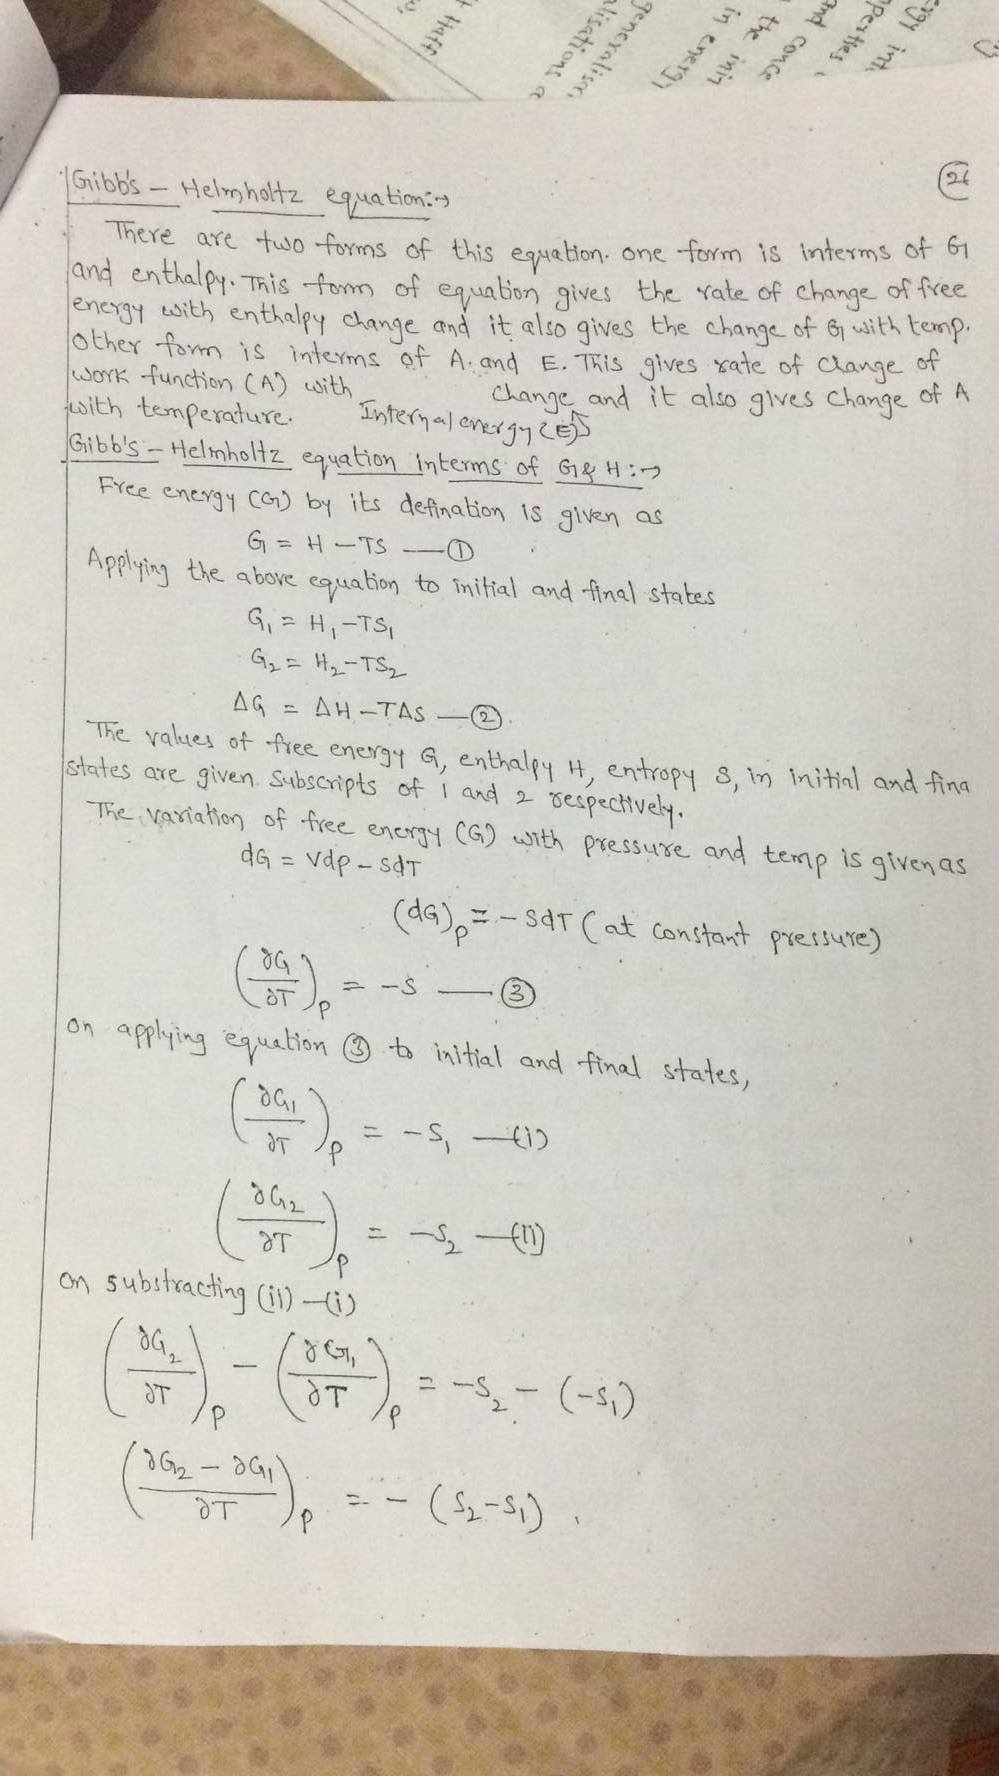 t Half
generalisa
alisations a
in energy
the inin
and conce
perties
ergy int
(26
Gibb's - Helmholtz equation:→
There are two forms of this equation. one form is interms of G
and enthalpy. This form of equation gives the rate of change of free
energy with enthalpy change and it also gives the change of G with temp.
Other form is interms of A. and E. This gives rate of change of
work function (A) with change and it also gives change of A
with temperature. Internal energy (E)
Gibb's - Helmholtz equation interms of G & H :→
Free energy (G) by its defination is given as
G = H - TS — ①
Applying the above equation to initial and final states
G₁ = H₁ - TS₁
G₂ = H₂ - TS₂
ΔG = ΔH - TΔS — ②.
The values of free energy G, enthalpy H, entropy S, in initial and fina
states are given subscripts of 1 and 2 respectively.
The variation of free energy (G) with pressure and temp is given as
dG = Vdp - SdT
(dG)p = - SdT (at constant pressure)
(∂G/∂T)p = -S — ③
on applying equation ③ to initial and final states,
(∂G₁/∂T)p = -S₁ — (i)
(∂G₂/∂T)p = -S₂ — (ii)
on substracting (ii) - (i)
(∂G₂/∂T)p - (∂G₁/∂T)p = -S₂ - (-S₁)
(∂G₂ - ∂G₁/∂T)p = - (S₂ - S₁).